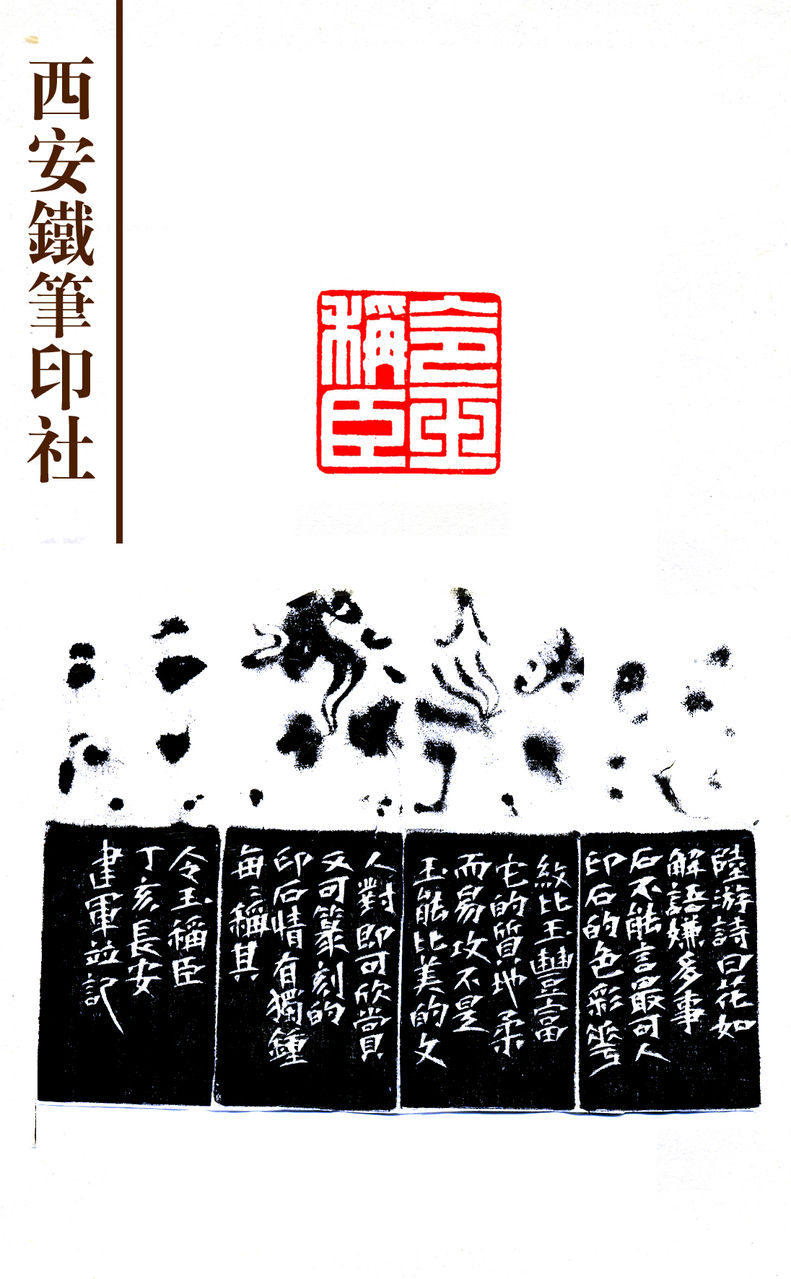 西安鐵筆印社
令玉
稱臣
陸游詩曰花如
解語嫌多事
石不能言最可人
印石的色彩
紋比玉豐富
它的質地柔
而易攻不是
玉能比美的文
人對即可欣賞
又可篆刻的
印石情有獨鍾
每々稱其
令玉稱臣
丁亥長安
建軍並記